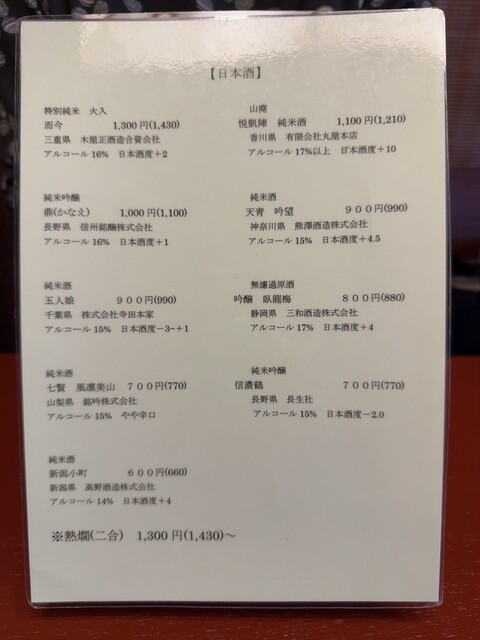 【日本酒】
特別純米　火入
而今　1,300円(1,430)
三重県　木屋正酒造合資会社
アルコール16%　日本酒度+2
山廃
悦凱陣　純米酒　1,100円(1,210)
香川県　有限会社丸尾本店
アルコール17%以上　日本酒度+10
純米吟醸
鼎(かなえ)　1,000円(1,100)
長野県　信州銘醸株式会社
アルコール16%　日本酒度+1
純米酒
天青　吟望　９００円(990)
神奈川県　熊澤酒造株式会社
アルコール15%　日本酒度+4.5
純米酒
五人娘　９００円(990)
千葉県　株式会社寺田本家
アルコール15%　日本酒度−3~+1
無濾過原酒
吟醸　臥龍梅　８００円(880)
静岡県　三和酒造株式会社
アルコール17%　日本酒度+4
純米酒
七賢　風凛美山　７００円(770)
山梨県　銘吟株式会社
アルコール15%　やや辛口
純米吟醸
信濃鶴　７００円(770)
長野県　長生社
アルコール15%　日本酒度−2.0
純米酒
新潟小町　６００円(660)
新潟県　高野酒造株式会社
アルコール14%　日本酒度+4
※熱燗(二合)　1,300円(1,430)～